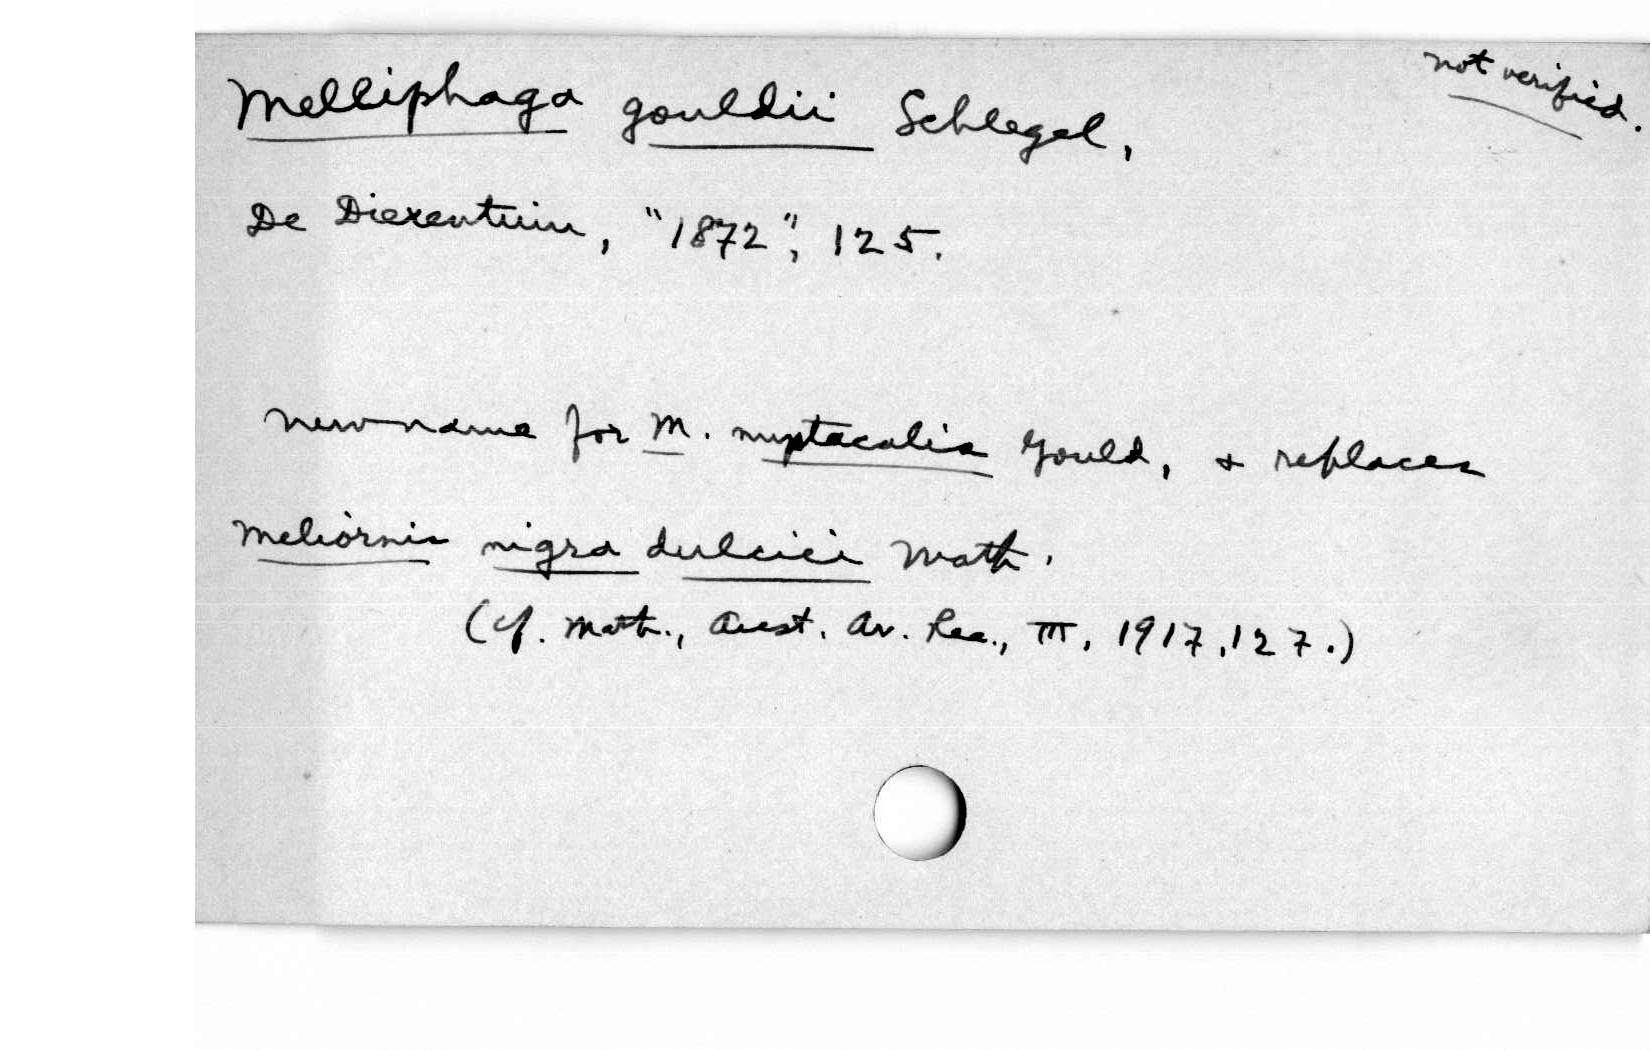 not verified.
Melliphaga gouldii Schlegel,
De Dierentuin, "1872", 125.
new name for M. mystacalis Gould, & replaces
Meliornis nigra dulciei Math.
(cf. Math., Aust. Av. Rec., III, 1917, 127.)